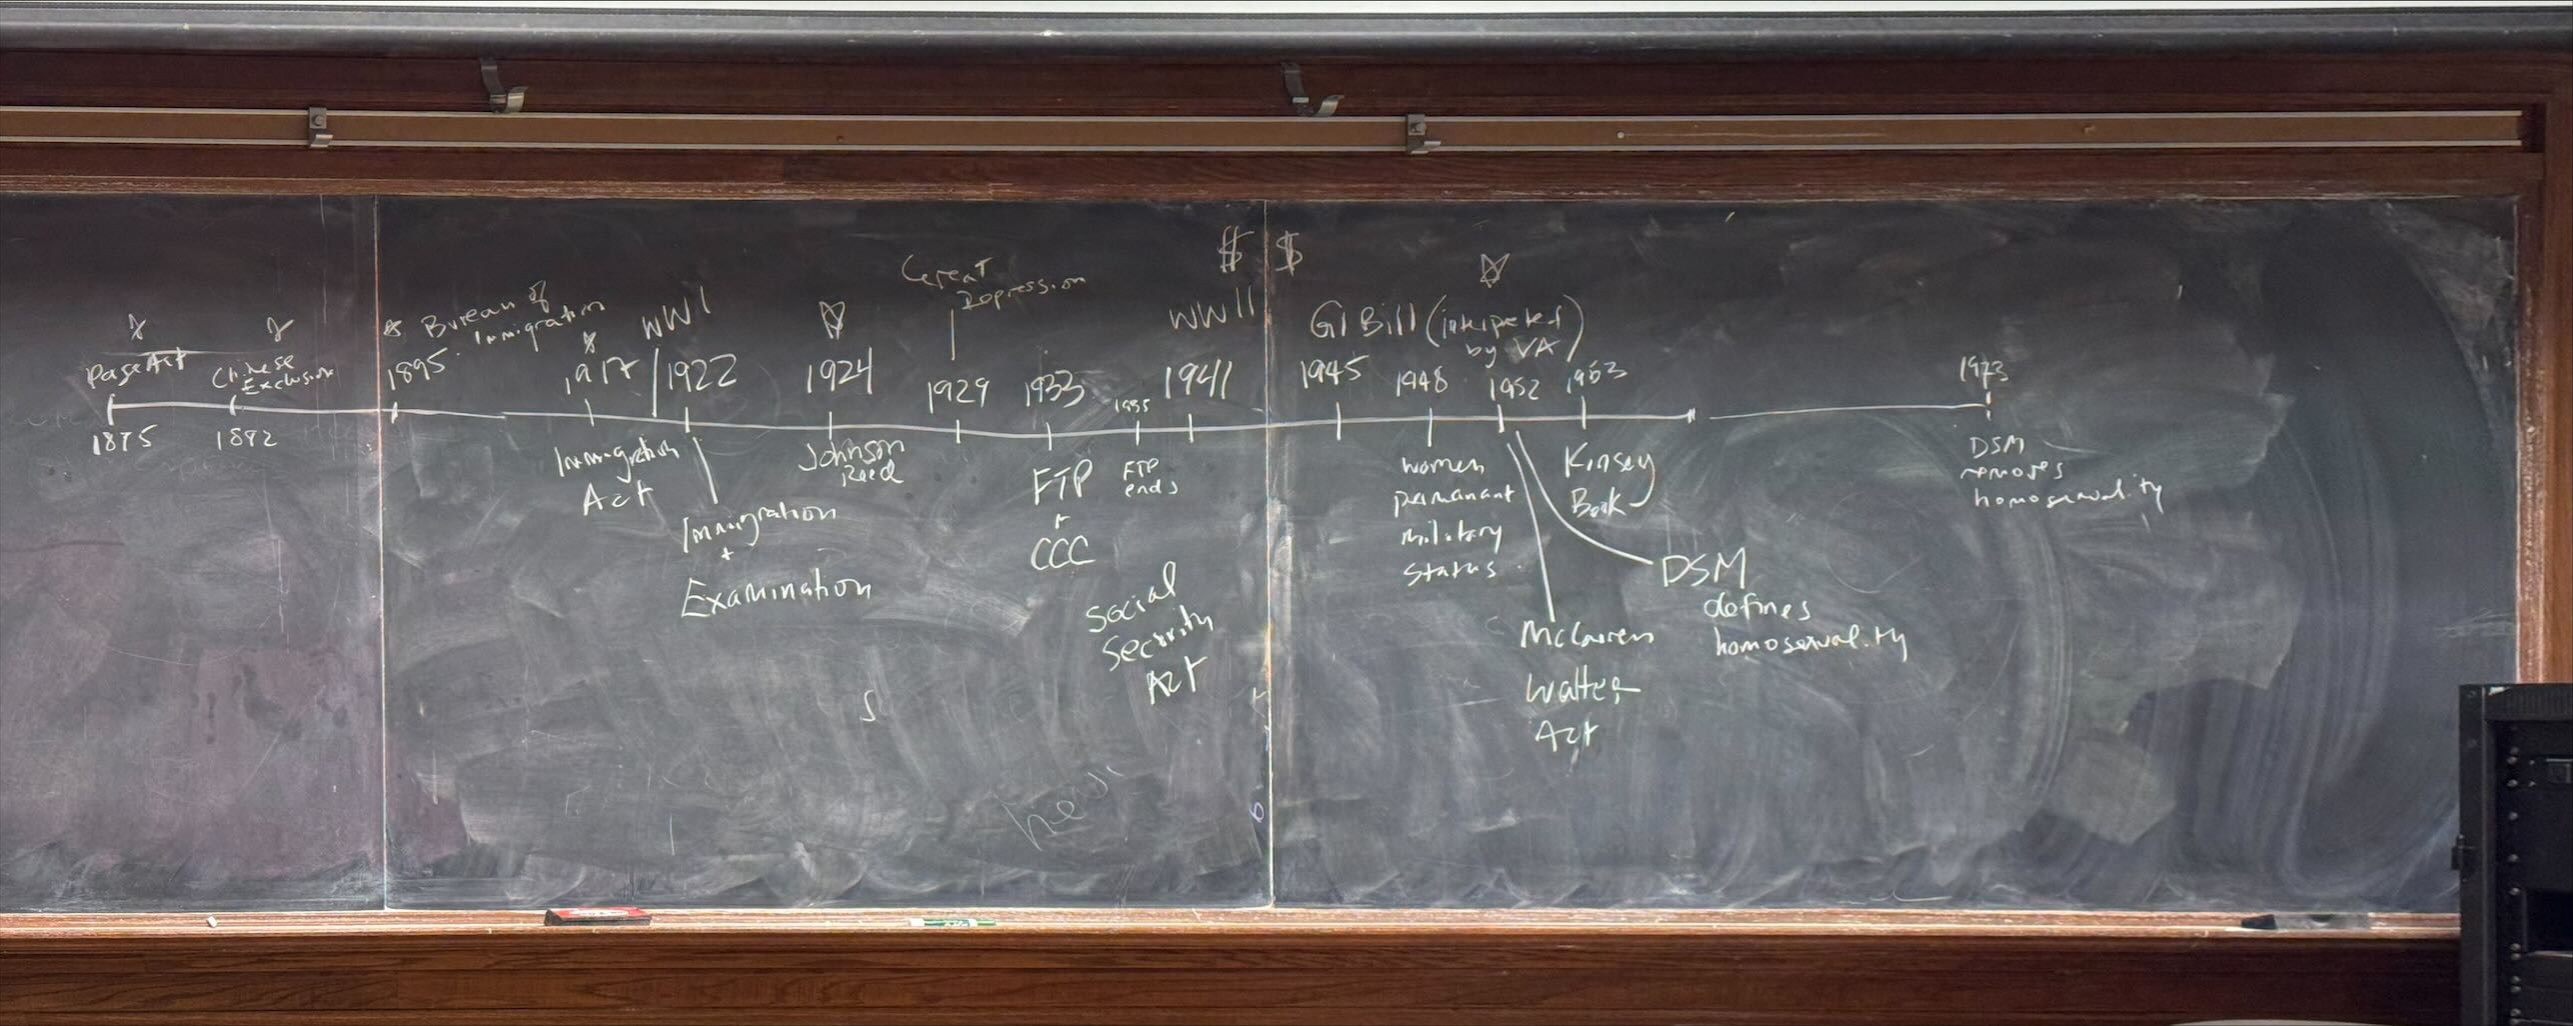 Page Act
Chinese
Exclusion
1875
1882
Bureau of
Immigration
1895
1917
Immigration
Act
WW I
1922
Immigration
+
Examination
1924
Johnson
Reed
Great
Depression
1929
1933
FTP
+
CCC
1935
FTP
ends
Social
Security
Act
$ $
WW II
1941
GI Bill (interpreted
by VA)
1945
1948
women
permanant
military
status
1952
McCarren
Walter
Act
DSM
defines
homosexuality
1953
Kinsey
Book
1973
DSM
removes
homosexuality